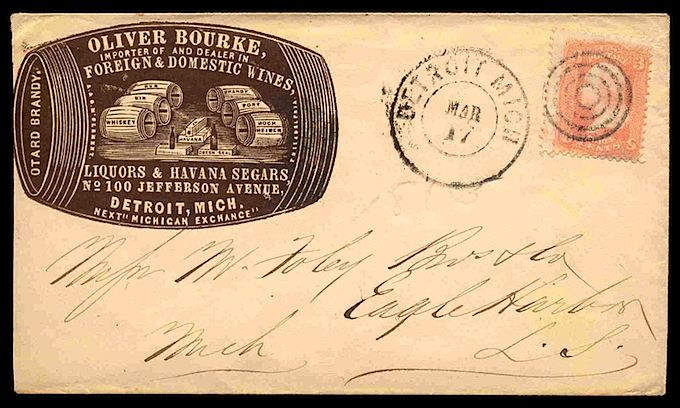 OLIVER BOURKE,
IMPORTER OF AND DEALER IN
FOREIGN & DOMESTIC WINES,
OTARD BRANDY.
GIN
WHISKEY
BRANDY
PORT
HOCK
HEIMER
HAVANA
GREEN SEAL
LIQUORS & HAVANA SEGARS,
No 100 JEFFERSON AVENUE,
DETROIT, MICH.
NEXT "MICHIGAN EXCHANGE"
DETROIT MICH
MAR
17
3
CENTS
W. Foley Bros & Co
Eagle Harbor
Mich L. S.